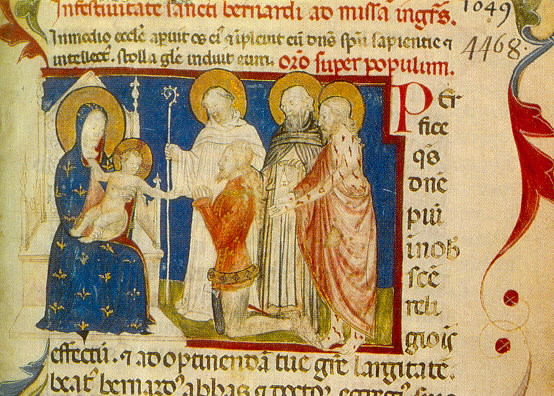 Infestiuitate sancti bernardi ad missa ingrs.
1049
Inmedio eccle aperuit os ei ⁊ ipleuit eū dns spū sapientie ⁊
4468.
intellect̄. stolla gle induit eum. orō super populum.
Per
fice
q̄s
dn̄e
piū
in nob
sc̄e
reli
giois
effectū. ⁊ ad optinendā tue gr̄e largitatē.
beat̓ bernard̓ abbas ⁊ doctor egregi᷒